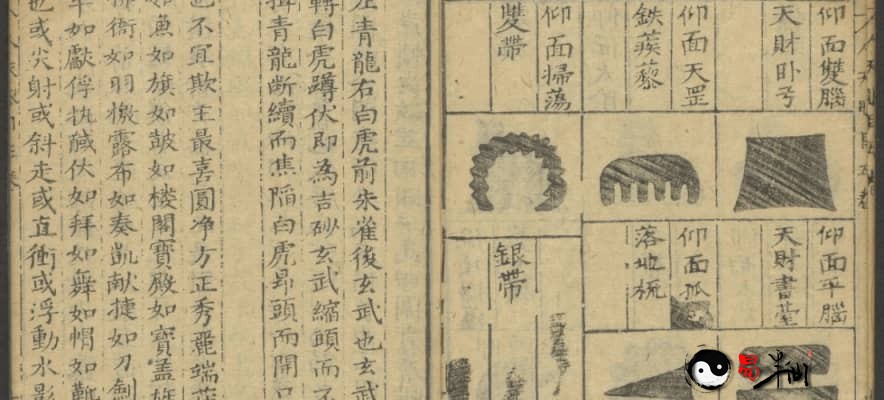 仰面雙腦
天財卧弓
仰面天罡
鉄蒺藜
仰面掃蕩
雙帶
仰面平腦
天財書臺
仰面孤
落地梳
銀帶
左青龍右白虎前朱雀後玄武也玄武
轉白虎蹲伏即為吉砂玄武縮頭而不
揖青龍断續而焦陷白虎昻頭而開口
也不宜欺主最喜圓净方正秀麗端
如魚如旗如鼓如楼閣寶殿如寶盖
衙如羽檄露布如奏凱献捷如刀劍
如獻俘执馘伏如拜如舞如帽如
也或尖射或斜走或直衝或浮動水影
易半仙